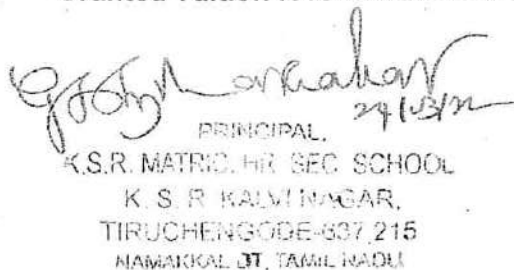 29/03/22
PRINCIPAL,
K.S.R. MATRIC. HR SEC SCHOOL
K. S. R KALVI NAGAR,
TIRUCHENGODE-637 215
NAMAKKAL DT, TAMIL NADU